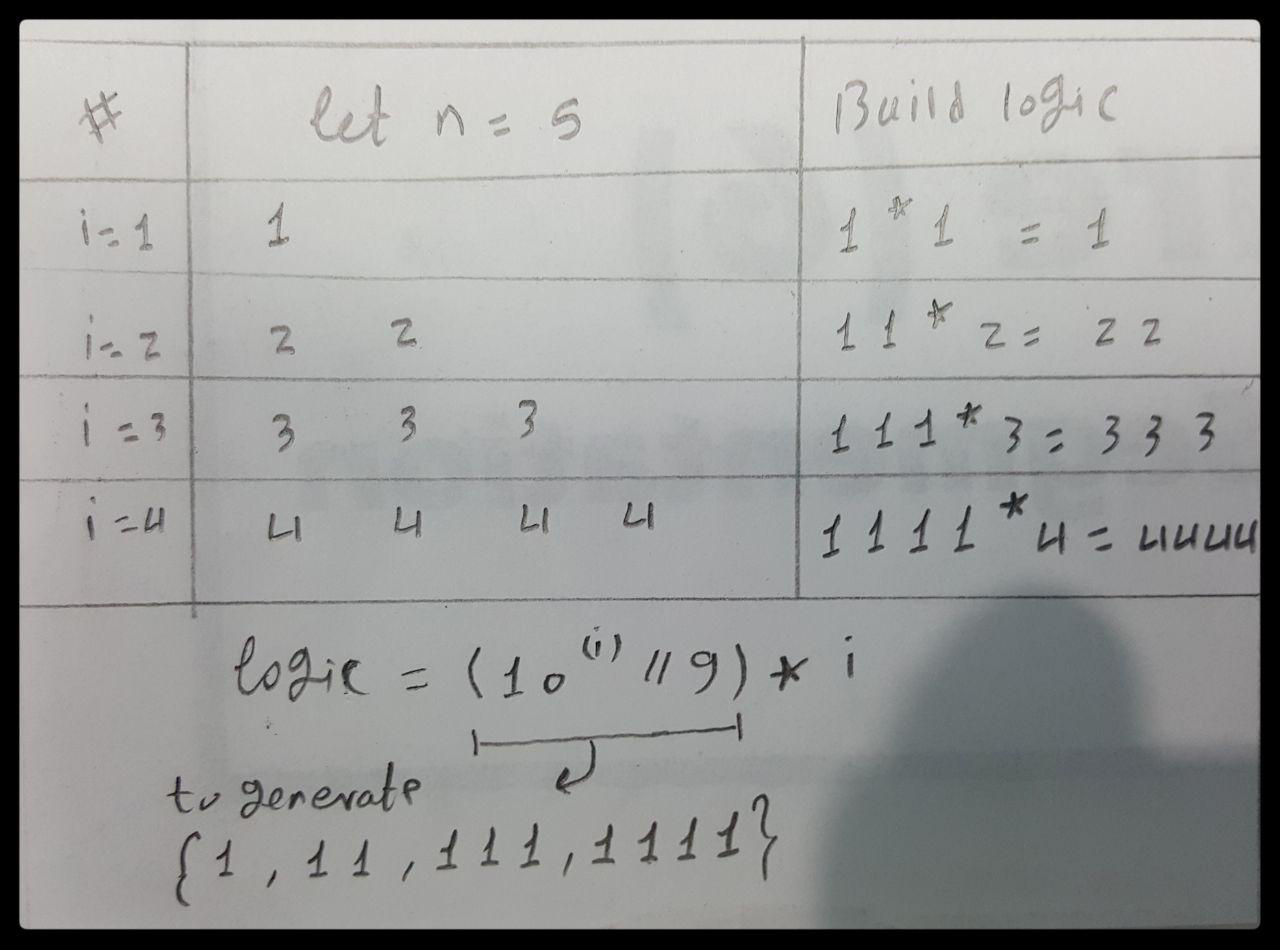 # let n = 5 Build logic
i=1 1 1 * 1 = 1
i=2 2 2 1 1 * 2 = 2 2
i=3 3 3 3 1 1 1 * 3 = 3 3 3
i=4 4 4 4 4 1 1 1 1 * 4 = 4444
logic = (10^(i) // 9) * i
to generate
{1, 11, 111, 1111}